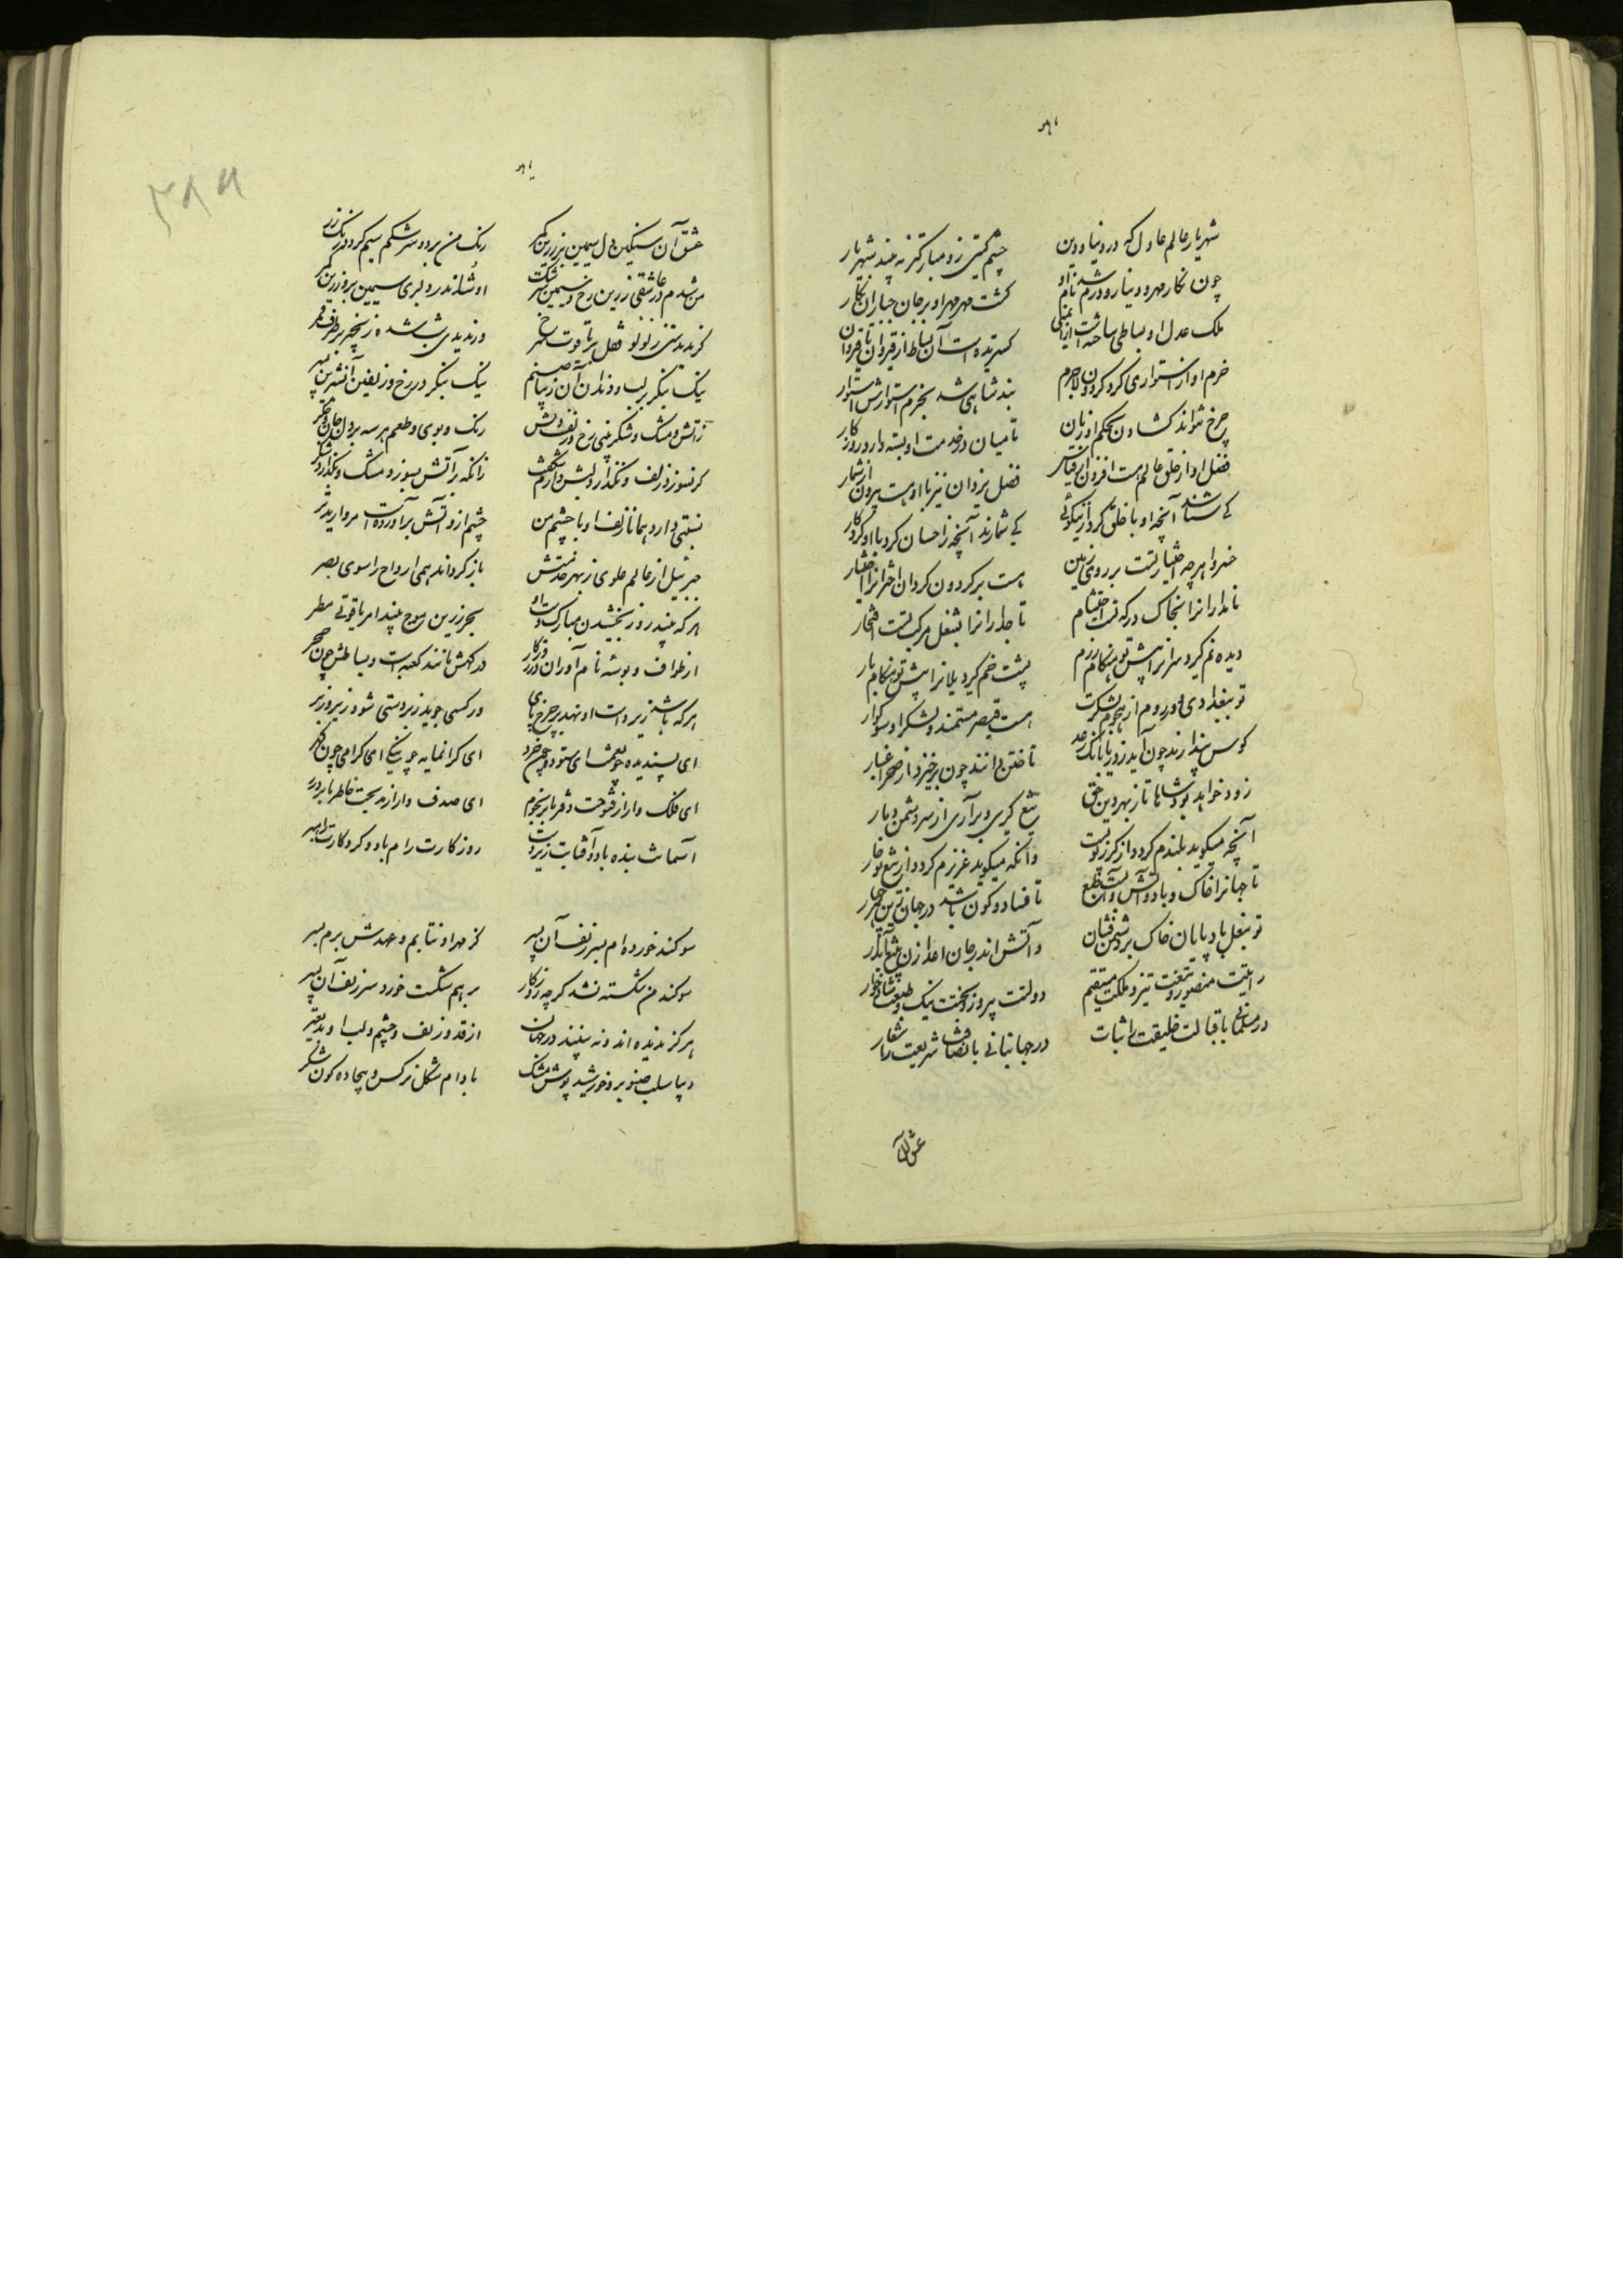 شهریار عالم عادل که در دنیا و دین
چشم گیتی زو مبارکتر نه بیند شهریار
چون نگار مهر و دینار و درم شد نام او
گشت مهر مهر او بر جان جباران نگار
ملک عدل او بساطی ساخت از ایمنی
گستریده است آن بساط از قیروان تا قیروان
حزم او از استواری کرد گردون لاجرم
بند شاهی شد بحزم استوارش استوار
چرخ نتواند گشادن بحکم او زبان
تا میان در خدمت او بسته دارد روزگار
فضل او از خلق عالم هست افزون از قیاس
فضل یزدان نیز با او هست بیرون از شمار
کی شناسند آنچه او با خلق کرد از نیکوئی
کی شمارند آنچه ز احسان کرد با او کردگار
خسروا هر چه اختیار تست بر روی زمین
هست بر گردون گردان اختر انرا اختیار
نامدارانرا بخاک درگه تست احتشام
تاجدارانرا بنعل مرکب تست افتخار
دیده نم گیرد سرانرا پیش تو هنگام رزم
پشت خم گیرد یلانرا پیش تو هنگام بار
تو ببغدادی و در روم از هجوم لشکرت
هست قیصر مستمند و لشکر او سوگوار
کوس پندارند چون آید ز دریا بانگ رعد
تاختن دانند چون برخیزد از صحرا غبار
زود خواهد بود شاها تا ز بهر دین حق
تیغ گیری و برآری از سر دشمن دمار
آنچه میگوید بلندم گردد از گرز تو پست
وانکه میگوید عزیزم گردد از تیغ تو خوار
تا جهانرا خاک و باد و آتش و آبست طبع
تا فساد و کون باشد در جهان زین هر چهار
تو بنعل باد پایان خاک بر دشمن فشان
و آتش اندر جان اعدا زن بتیغ آبدار
رایتت منصور و تیغت تیز و ملکت مستقیم
دولتت پیروز و بختت نیک و طبعت شادخوار
در مسلمانی باقبالت خلیفت را ثبات
در جهانبانی بانصافت شریعت را شعار
عشق آن
عشق آن سنگین دل سیمین بر زرین کمر
رنگ من بردو سر شکم سیم کرد و رنگ زر
من شدم در عاشقی زرین رخ و سیمین سرشک
او شد اندر دلبری سیمین بر و زرین کمر
گر ندیدستی ز لولو قفل بر یاقوت سرخ
ور ندیدی شاشه ز زنجیر بر طرف قمر
نیک بنگر بر لب و دندان آن زیبا صنم
نیک بنگر در رخ و زلفین آن شیرین پسر
ز آتش و مشک و شکر بینی رخ و زلف و لبش
رنگ و بوی و طعم هر سه بر دل و جان و جگر
گر نسوزد زلف و نگدازد لبش دارم شگفت
زانکه در آتش بسوزد مشک و بگدازد شکر
نسبتی دارد همانا زلف او با چشم من
چشم از دو آتش برآورده است مروارید تر
جبرئیل از عالم علوی ز بهر خدمتش
باز گرداند همی ارواح را سوی بصر
هر که بیند روز بخشیدن مبارک دست او
بحر زرین موج بیند ابر یاقوتی مطر
از طواف و بوسه نام آوران در روزگار
درگهش مانند کعبه است و بساطش چون حجر
هر که باشد زیر دست او نهد بر چرخ پای
ور کسی جوید زبردستی شود زیر و زبر
ای پسندیده چو نعمت ای ستوده چون خرد
ای گرانمایه چو نیکی ای گرامی چون گهر
ای فلک وار از فتوحت دفتر ما پر نجوم
ای صدف وار از مدیحت خاطر ما پر درر
آسمانت بنده باد و آفتابت زیر دست
روزگارت رام باد و کردگارت راهبر
سوگند خورده ام بسر زلف آن پسر
کز مهر او نتابم و عهدش برم بسر
سوگند من شکسته نشد گر چه روزگار
بر هم شکست خورد سر زلف آن پسر
هرگز ندیده اند و نه بینند در جهان
از قد و زلف و چشم و لب او بدیعتر
دیبا سلب صنوبر و خورشید پوش مشک
بادام شکل نرگس و بیجاده گون شکر